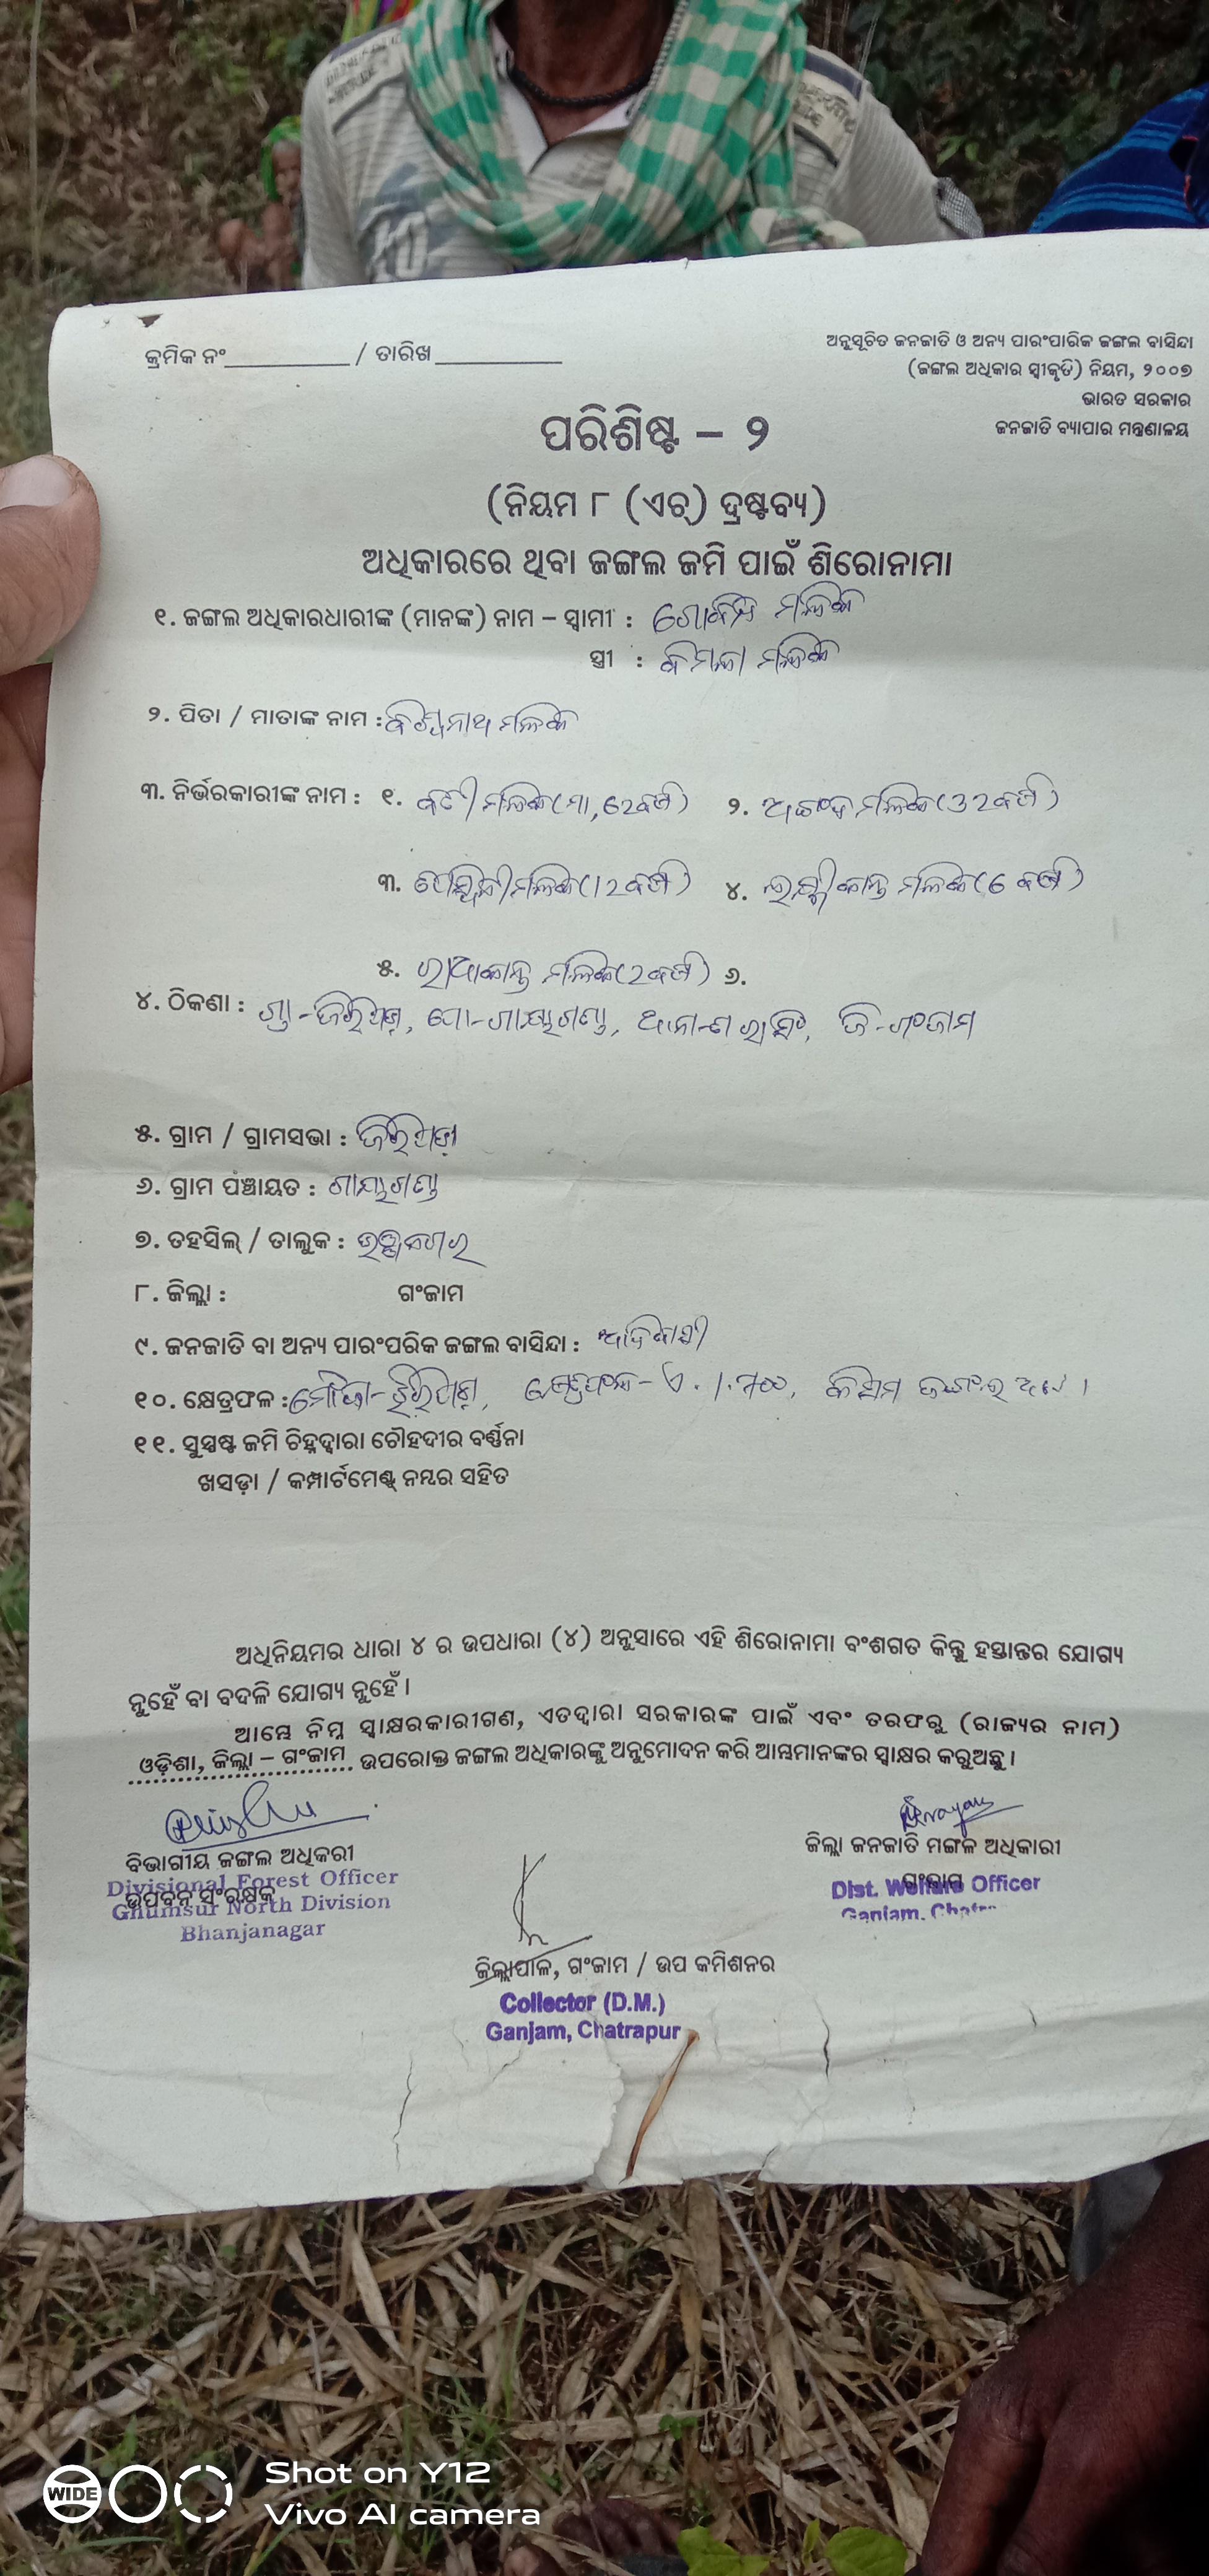 କ୍ରମିକ ନଂ__________ / ତାରିଖ__________
ଅନୁସୂଚିତ ଜନଜାତି ଓ ଅନ୍ୟ ପାରଂପାରିକ ଜଙ୍ଗଲ ବାସିନ୍ଦା
(ଜଙ୍ଗଲ ଅଧିକାର ସ୍ୱୀକୃତି) ନିୟମ, ୨୦୦୭
ଭାରତ ସରକାର
ଜନଜାତି ବ୍ୟାପାର ମନ୍ତ୍ରଣାଳୟ
ପରିଶିଷ୍ଟ – ୨
(ନିୟମ ୮ (ଏଚ୍) ଦ୍ରଷ୍ଟବ୍ୟ)
ଅଧିକାରରେ ଥିବା ଜଙ୍ଗଲ ଜମି ପାଇଁ ଶିରୋନାମା
୧. ଜଙ୍ଗଲ ଅଧିକାରଧାରୀଙ୍କ (ମାନଙ୍କ) ନାମ – ସ୍ୱାମୀ : ମଲ୍ଲିକ
ସ୍ତ୍ରୀ : ବିମଳା ମଲ୍ଲିକ
୨. ପିତା / ମାତାଙ୍କ ନାମ : ବିଶ୍ୱନାଥ ମଲ୍ଲିକ
୩. ନିର୍ଭରକାରୀଙ୍କ ନାମ : ୧. ମଲ୍ଲିକ (ମା, 62ବର୍ଷ) ୨. ମଲ୍ଲିକ (32ବର୍ଷ)
୩. ମଲ୍ଲିକ (12ବର୍ଷ) ୪. ଲକ୍ଷ୍ମୀକାନ୍ତ ମଲ୍ଲିକ (6 ବର୍ଷ)
୫. ରାଧାକାନ୍ତ ମଲ୍ଲିକ (2ବର୍ଷ) ୬.
୪. ଠିକଣା : ଗ୍ରା- ପୋ- ଥାନା- ଜି-ଗଂଜାମ
୫. ଗ୍ରାମ / ଗ୍ରାମସଭା :
୬. ଗ୍ରାମ ପଂଞ୍ଚାୟତ :
୭. ତହସିଲ୍ / ତାଲୁକ : ଭଞ୍ଜନଗର
୮. ଜିଲ୍ଲା : ଗଂଜାମ
୯. ଜନଜାତି ବା ଅନ୍ୟ ପାରଂପରିକ ଜଙ୍ଗଲ ବାସିନ୍ଦା : ଆଦିବାସୀ
୧୦. କ୍ଷେତ୍ରଫଳ : ମୌଜା- କ୍ଷେତ୍ରଫଳ- କିସମ
୧୧. ସୁସ୍ପଷ୍ଟ ଜମି ଚିହ୍ନଦ୍ୱାରା ଚୌହଦୀର ବର୍ଣ୍ଣନା
ଖସଡ଼ା / କମ୍ପାର୍ଟମେଣ୍ଟ୍ ନମ୍ବର ସହିତ
ଅଧିନିୟମର ଧାରା ୪ ର ଉପଧାରା (୪) ଅନୁସାରେ ଏହି ଶିରୋନାମା ବଂଶଗତ କିନ୍ତୁ ହସ୍ତାନ୍ତର ଯୋଗ୍ୟ
ନୁହେଁ ବା ବଦଳି ଯୋଗ୍ୟ ନୁହେଁ ।
ଆମ୍ଭେ ନିମ୍ନ ସ୍ୱାକ୍ଷରକାରୀଗଣ, ଏତଦ୍ୱାରା ସରକାରଙ୍କ ପାଇଁ ଏବଂ ତରଫରୁ (ରାଜ୍ୟର ନାମ)
ଓଡ଼ିଶା, ଜିଲ୍ଲା – ଗଂଜାମ ଉପରୋକ୍ତ ଜଙ୍ଗଲ ଅଧିକାରଙ୍କୁ ଅନୁମୋଦନ କରି ଆମ୍ଭମାନଙ୍କର ସ୍ୱାକ୍ଷର କରୁଅଛୁ ।
ବିଭାଗୀୟ ଜଙ୍ଗଲ ଅଧିକରୀ
ଉପବନ ସଂରକ୍ଷକ
Divisional Forest Officer
Ghumsur North Division
Bhanjanagar
ଜିଲ୍ଲା ଜନଜାତି ମଙ୍ଗଳ ଅଧିକାରୀ
ଗଂଜାମ
Dist. Welfare Officer
Ganjam,
ଜିଲ୍ଲାପାଳ, ଗଂଜାମ / ଉପ କମିଶନର
Collector (D.M.)
Ganjam, Chatrapur
WIDE
Shot on Y12
Vivo AI camera